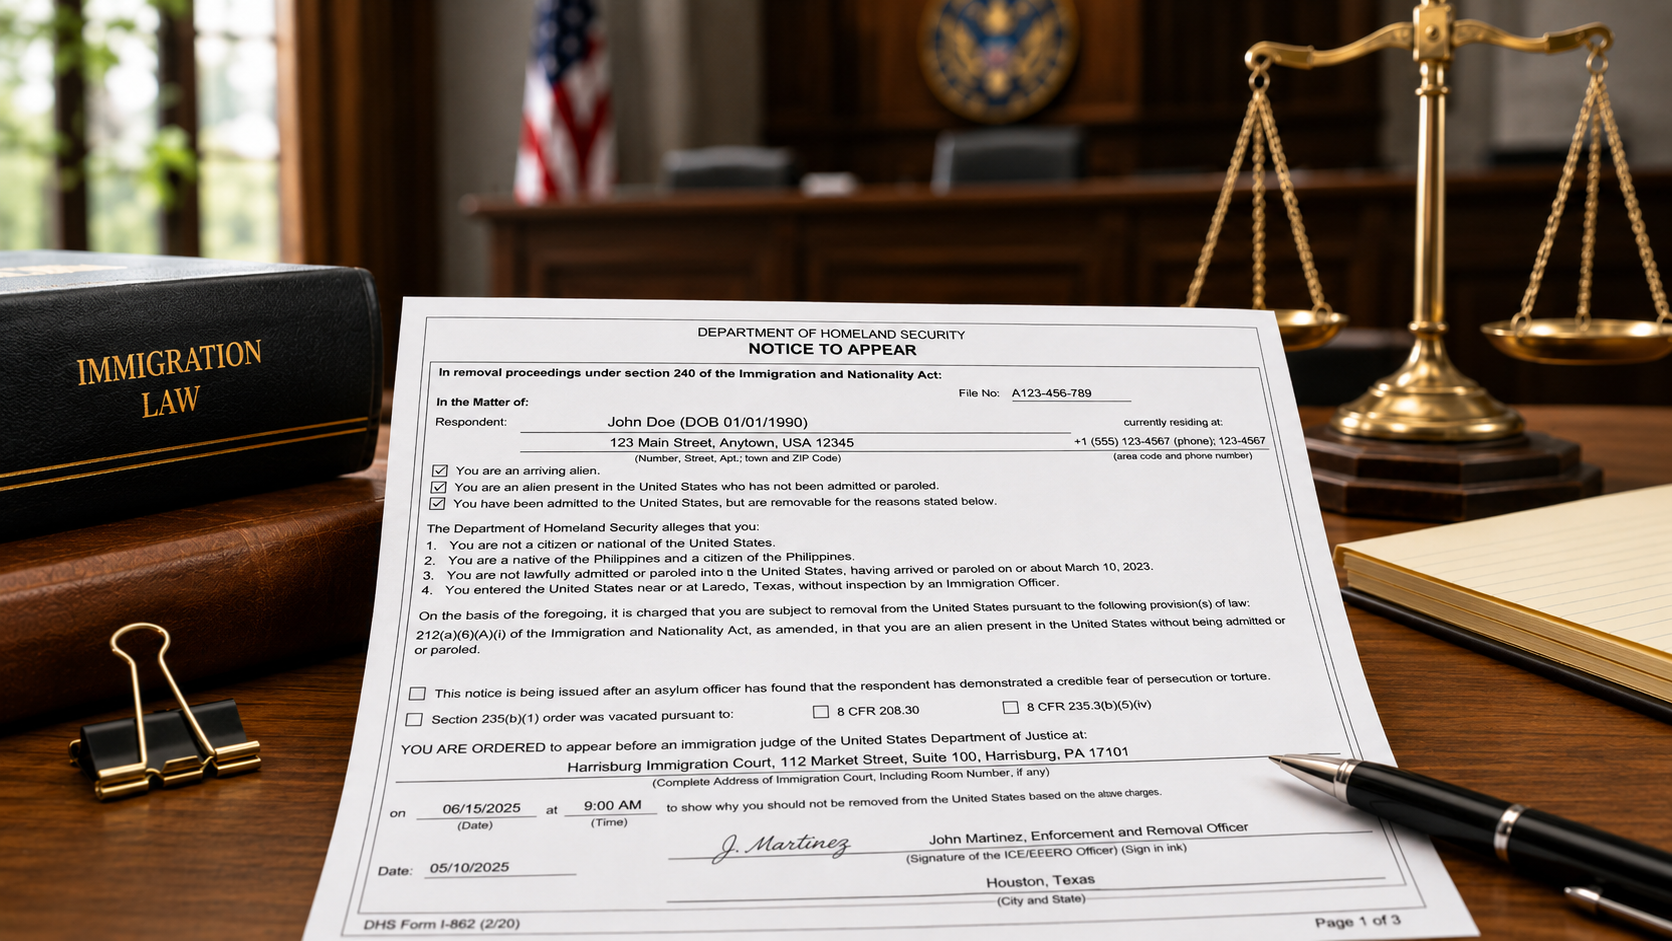 IMMIGRATION
LAW
DEPARTMENT OF HOMELAND SECURITY
NOTICE TO APPEAR
In removal proceedings under section 240 of the Immigration and Nationality Act:
File No: A123-456-789
In the Matter of:
Respondent: John Doe (DOB 01/01/1990) currently residing at:
123 Main Street, Anytown, USA 12345 +1 (555) 123-4567 (phone); 123-4567
(Number, Street, Apt.; town and ZIP Code) (area code and phone number)
You are an arriving alien.
You are an alien present in the United States who has not been admitted or paroled.
You have been admitted to the United States, but are removable for the reasons stated below.
The Department of Homeland Security alleges that you:
1. You are not a citizen or national of the United States.
2. You are a native of the Philippines and a citizen of the Philippines.
3. You are not lawfully admitted or paroled into the United States, having arrived or paroled on or about March 10, 2023.
4. You entered the United States near or at Laredo, Texas, without inspection by an Immigration Officer.
On the basis of the foregoing, it is charged that you are subject to removal from the United States pursuant to the following provision(s) of law:
212(a)(6)(A)(i) of the Immigration and Nationality Act, as amended, in that you are an alien present in the United States without being admitted or
or paroled.
This notice is being issued after an asylum officer has found that the respondent has demonstrated a credible fear of persecution or torture.
Section 235(b)(1) order was vacated pursuant to: 8 CFR 208.30 8 CFR 235.3(b)(5)(iv)
YOU ARE ORDERED to appear before an immigration judge of the United States Department of Justice at:
Harrisburg Immigration Court, 112 Market Street, Suite 100, Harrisburg, PA 17101
(Complete Address of Immigration Court, Including Room Number, if any)
on 06/15/2025 at 9:00 AM to show why you should not be removed from the United States based on the above charges.
(Date) (Time)
J. Martinez John Martinez, Enforcement and Removal Officer
(Signature of the ICE/EEERO Officer) (Sign in ink)
Date: 05/10/2025
Houston, Texas
(City and State)
DHS Form I-862 (2/20) Page 1 of 3